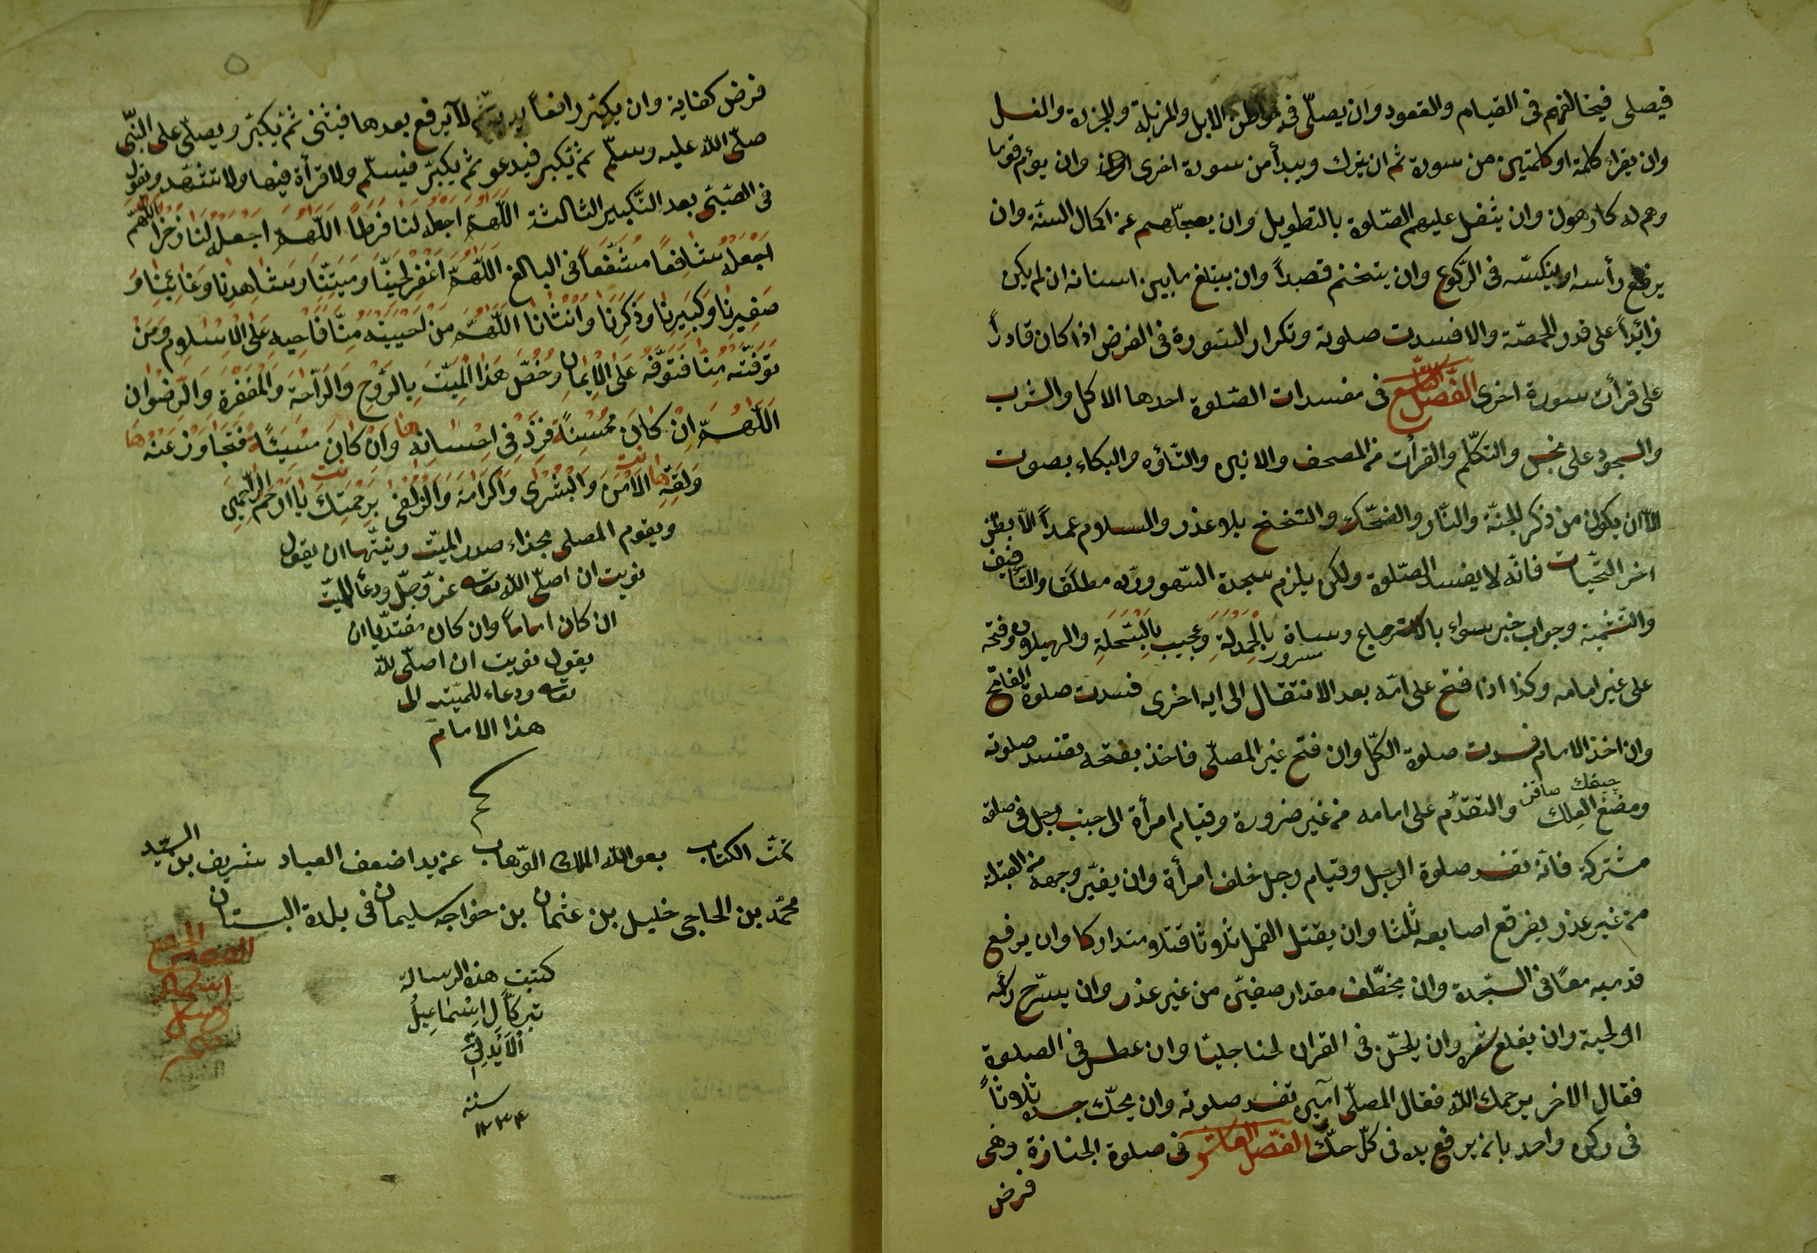 فيصلى فيخالفهم فى القيام والقعود وان يصلّى فى مواطن الابل والمزبلة والمجزرة والمغسل
وان يقراء كلمة او كلمتين من سورة ثم ان يترك ويبدأ من سورة اخرى وان يؤم قوما
وهم له كارهون وان يثقل عليهم الصّلوة بالتطويل وان يعجلهم عن اكمال السنّة وان
يرفع رأسه او ينكسه فى الرّكوع وان يتخنم قصداً وان يبتلع ما بين اسنانه ان لم يكن
زائداً على قدر الحمصّة والا فسدت صلوته وتكرار السّورة فى الفرض اذا كان قادراً
على قرأت سورة اخرى الفصل التاسع فى مفسدات الصّلوة احدها الاكل والشرب
والسجود على نجس والتكلّم والقرأت من المصحف والانين والتّأوّه والبكاء بصوت
الّا ان يكون من ذكر الجنّة والنّار والضحك والتخنح بلا عذر والسلام عمداً الّا بظنّ
اخر التحيّات فانّه لا يفسد الصّلوة ولكن يلزم سجدة السّهو وردّه مطلقا والتّأفيف
والتشميّة وجواب خبر سواء بالاسترجاع وسارّ بالحمدلة وعجيب بالسّبحلة والهيللة وفتحه
سرور
على غير امامه وكذا اذا فتح على امّه بعد الانتقال الى ايه اخرى فسدت صلوة الفاتح
وان اخذ الامام فسدت صلوة الكلّ وان فتح غير المصلّى فاخذ بفتحه تفسد صلوته
چيفك صاقز
ومضغ العلك والتقدّم على امامه من غير ضرورة وقيام امرأة الى جنب رجل فى صلوة
مشتركة فانّه تفسد صلوة الرجل وقيام رجل خلف امرأة وان يغيّر وجهه من القبلة
من غير عذر يفرقع اصابعه ثلثا وان يقتل القمل ثلاثا قتلا متداركا وان يرفع
قدميه معًا فى السّجدة وان يخطّف مقدار صفين من غير عذر وان يسرّح رأسه
او لحيته وان يقلع شعره وان يلحّن فى القران لحنا جليّا وان عطس فى الصلوة
فقال الاخر يرحمك اللّه فقال المصلّى آمين تفسد صلوته وان يحكّ جسده ثلاثاً
فى ركن واحد بان يرفع يده فى كلّ حكّ الفصل العاشر فى صلوة الجنازة وهى
فرض
فرض كفاية وان يكبّر رافعاً يديه ثمّ لا يرفع بعدها فيثنى ثمّ يكبّر ويصلّى على النّبّى
صلّى اللّه عليه وسلّم ثم يكبر فيدعو ثم يكبّر فيسلّم ولا قرأة فيها ولا تشهّد ويقول
فى الصّبىّ بعد التّكبير الثالثة اللّهمّ اجعله لنا فرطاً اللّهمّ اجعله لنا ذخراً اللّهمّ
اجعله شافعاً مشفّعاً فى البالغ اللّهمّ اغفر لحيّنا وميّتنا وشاهدنا وغائبنا و
صغيرنا وكبيرنا وذكرنا وانثانا اللّهمّ من احييته منّا فاحيه على الاسلام ومن
توفّيته منّا فتوفّه على الايمان وخصّ هذا الميّت بالرّوح والرّاحة والمغفرة والرّضوان
اللّهمّ ان كان محسنةً فزد فى احسانه ها وان كان مسيئةً فتجاوز عنه ها
ولقّه ها الامن والبشرى والكرامة والزّلفى برحمتك يا ارحم الرّاحمين
ويقوم المصلى بحذاء صدر الميّت ونيّتها ان يقول
نويت ان اصلّى اللّه تعالى عزّ وجلّ ودعاً للميّت
ان كان اماما وان كان مقتديّا ان
يقول نويت ان اصلّى للّه
تعالى ودعاء للميّت
هذا الامام
تمّت الكتاب بعون اللّه الملك الوّهاب عن يد اضعف العباد شريف بن السّيد
محمّد بن الحاجى خليل بن عثمان بن خواجه سليمان فى بلدة البستان
كتبت هذه الرسالة
اسماعيل
سنه
١٢٣٤